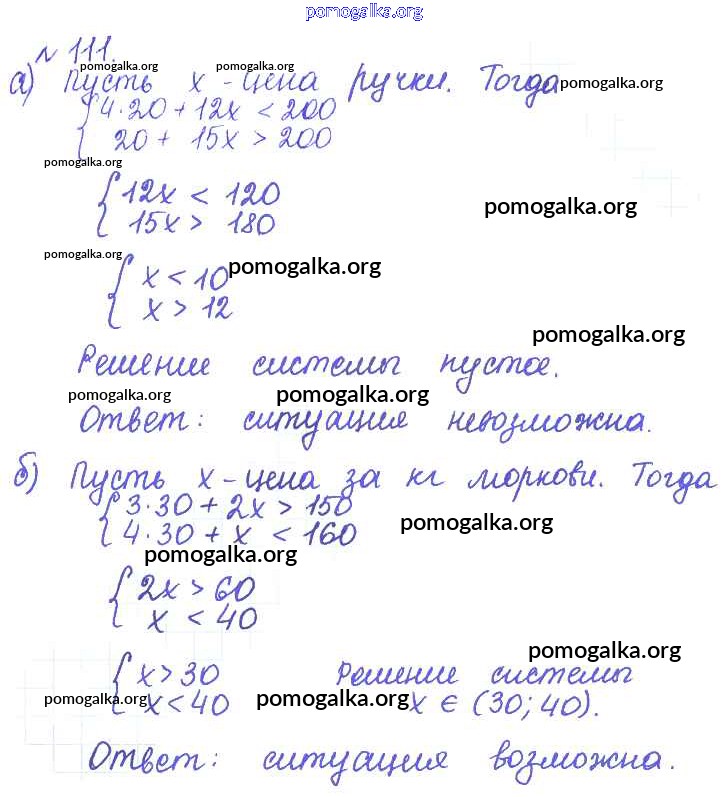 pomogalka.org
№ 111.
pomogalka.org pomogalka.org
а) Пусть x - цена ручки. Тогда pomogalka.org
{ 4·20 + 12x < 200
20 + 15x > 200
pomogalka.org
{ 12x < 120
15x > 180
pomogalka.org
pomogalka.org
{ x < 10 pomogalka.org
x > 12
pomogalka.org
Решение системы пустое.
pomogalka.org pomogalka.org
Ответ: ситуация невозможна.
б) Пусть x - цена за кг моркови. Тогда
{ 3·30 + 2x > 150
4·30 + x < 160 pomogalka.org
pomogalka.org
{ 2x > 60
x < 40
pomogalka.org
{ x > 30 Решение системы
x < 40 x ∈ (30; 40).
pomogalka.org pomogalka.org
Ответ: ситуация возможна.